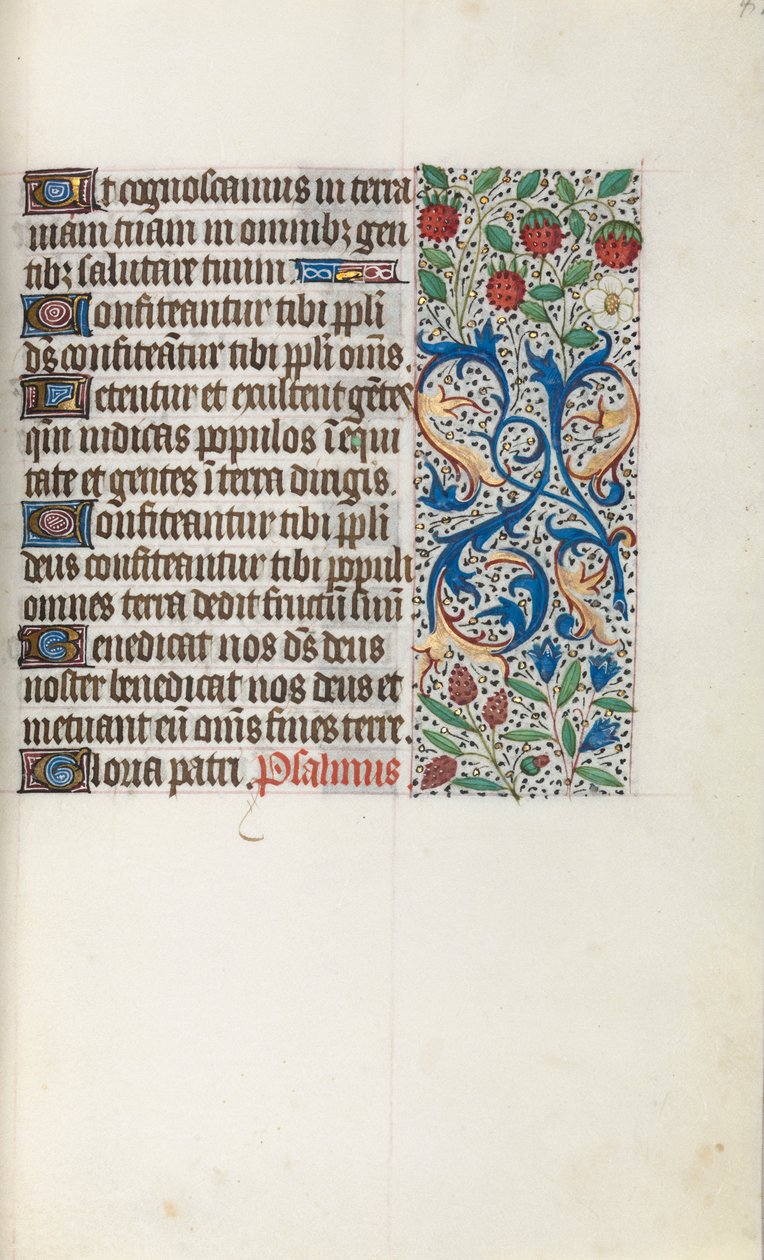 Ut cognoscamus in terra
viam tuam in omnibꝫ gen
tibꝫ salutare tuum.
Confiteantur tibi ppl̄i
dꝰs confiteātur tibi ppl̄i om̄s.
Letentur et exultent gētes
qm̄ iudicas populos ī equi
tate et gentes ī terra dirigis.
Confiteantur tibi ppl̄i
deus confiteantur tibi populi
omnes terra dedit fructū suū
Benedicat nos ds̄ deus
noster benedicat nos deus et
metuant eū om̄s fines terre.
Gloria patri. Psalmus.